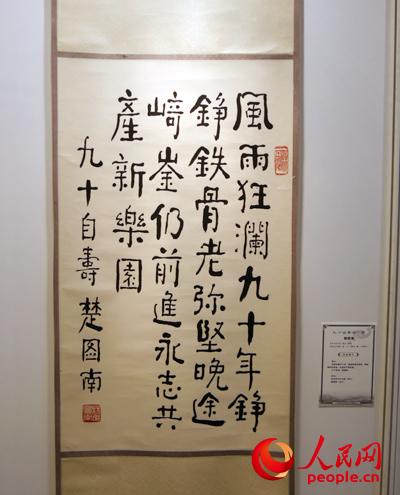 風雨狂瀾九十年錚
錚鉄骨老弥堅晚途
崎崟仍前進永志共
產新樂園
九十自壽 楚图南
人民网
people.cn